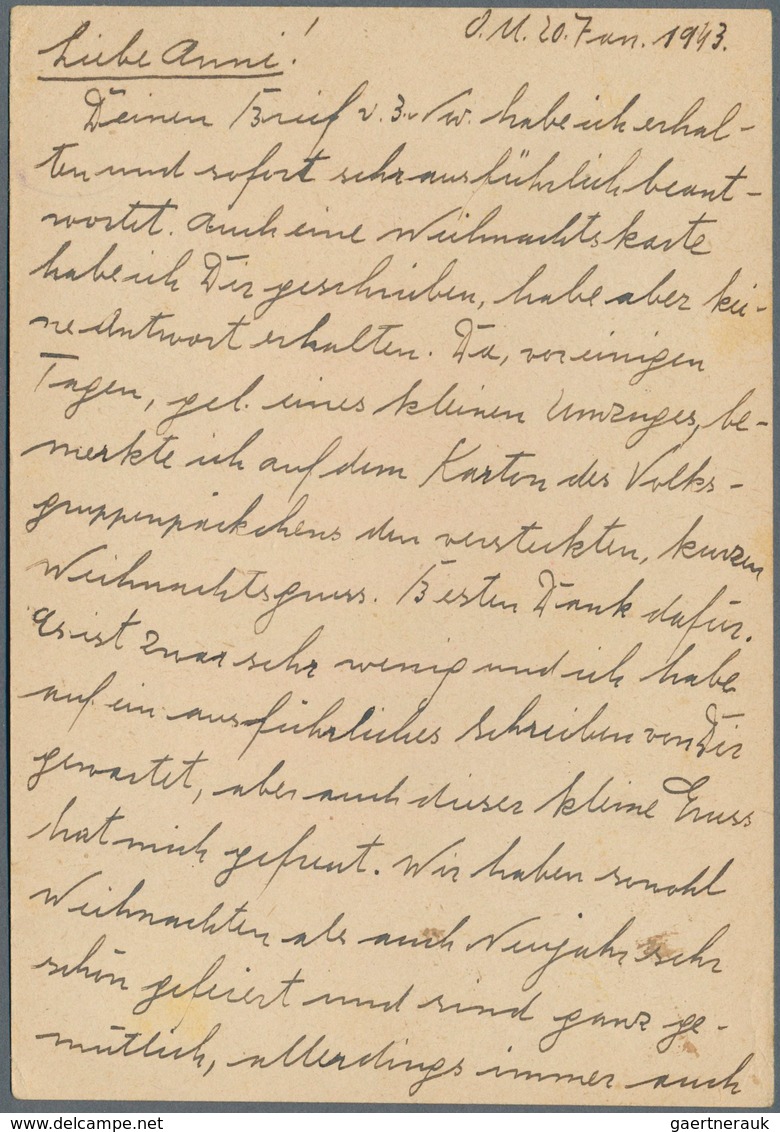 O.U. 20. Jan. 1943.
Liebe Anni!
Deinen Brief v. 3. Nov. habe ich erhal-
ten und sofort sehr ausführlich beant-
wortet. Auch eine Weihnachtskarte
habe ich Dir geschrieben, habe aber kei-
ne Antwort erhalten. Da, vor einigen
Tagen, gel. eines kleinen Umzuges, be-
merkte ich auf dem Karton des Volks-
gruppenpäckchens den versteckten, kurzen
Weihnachtsgruss. Besten Dank dafür.
Es ist zwar sehr wenig und ich habe
auf ein ausführliches Schreiben von Dir
gewartet, aber auch dieser kleine Gruss
hat mich gefreut. Wir haben sowohl
Weihnachten als auch Neujahr sehr
schön gefeiert und sind ganz ge-
mütlich, allerdings immer auch
gaertnerauk